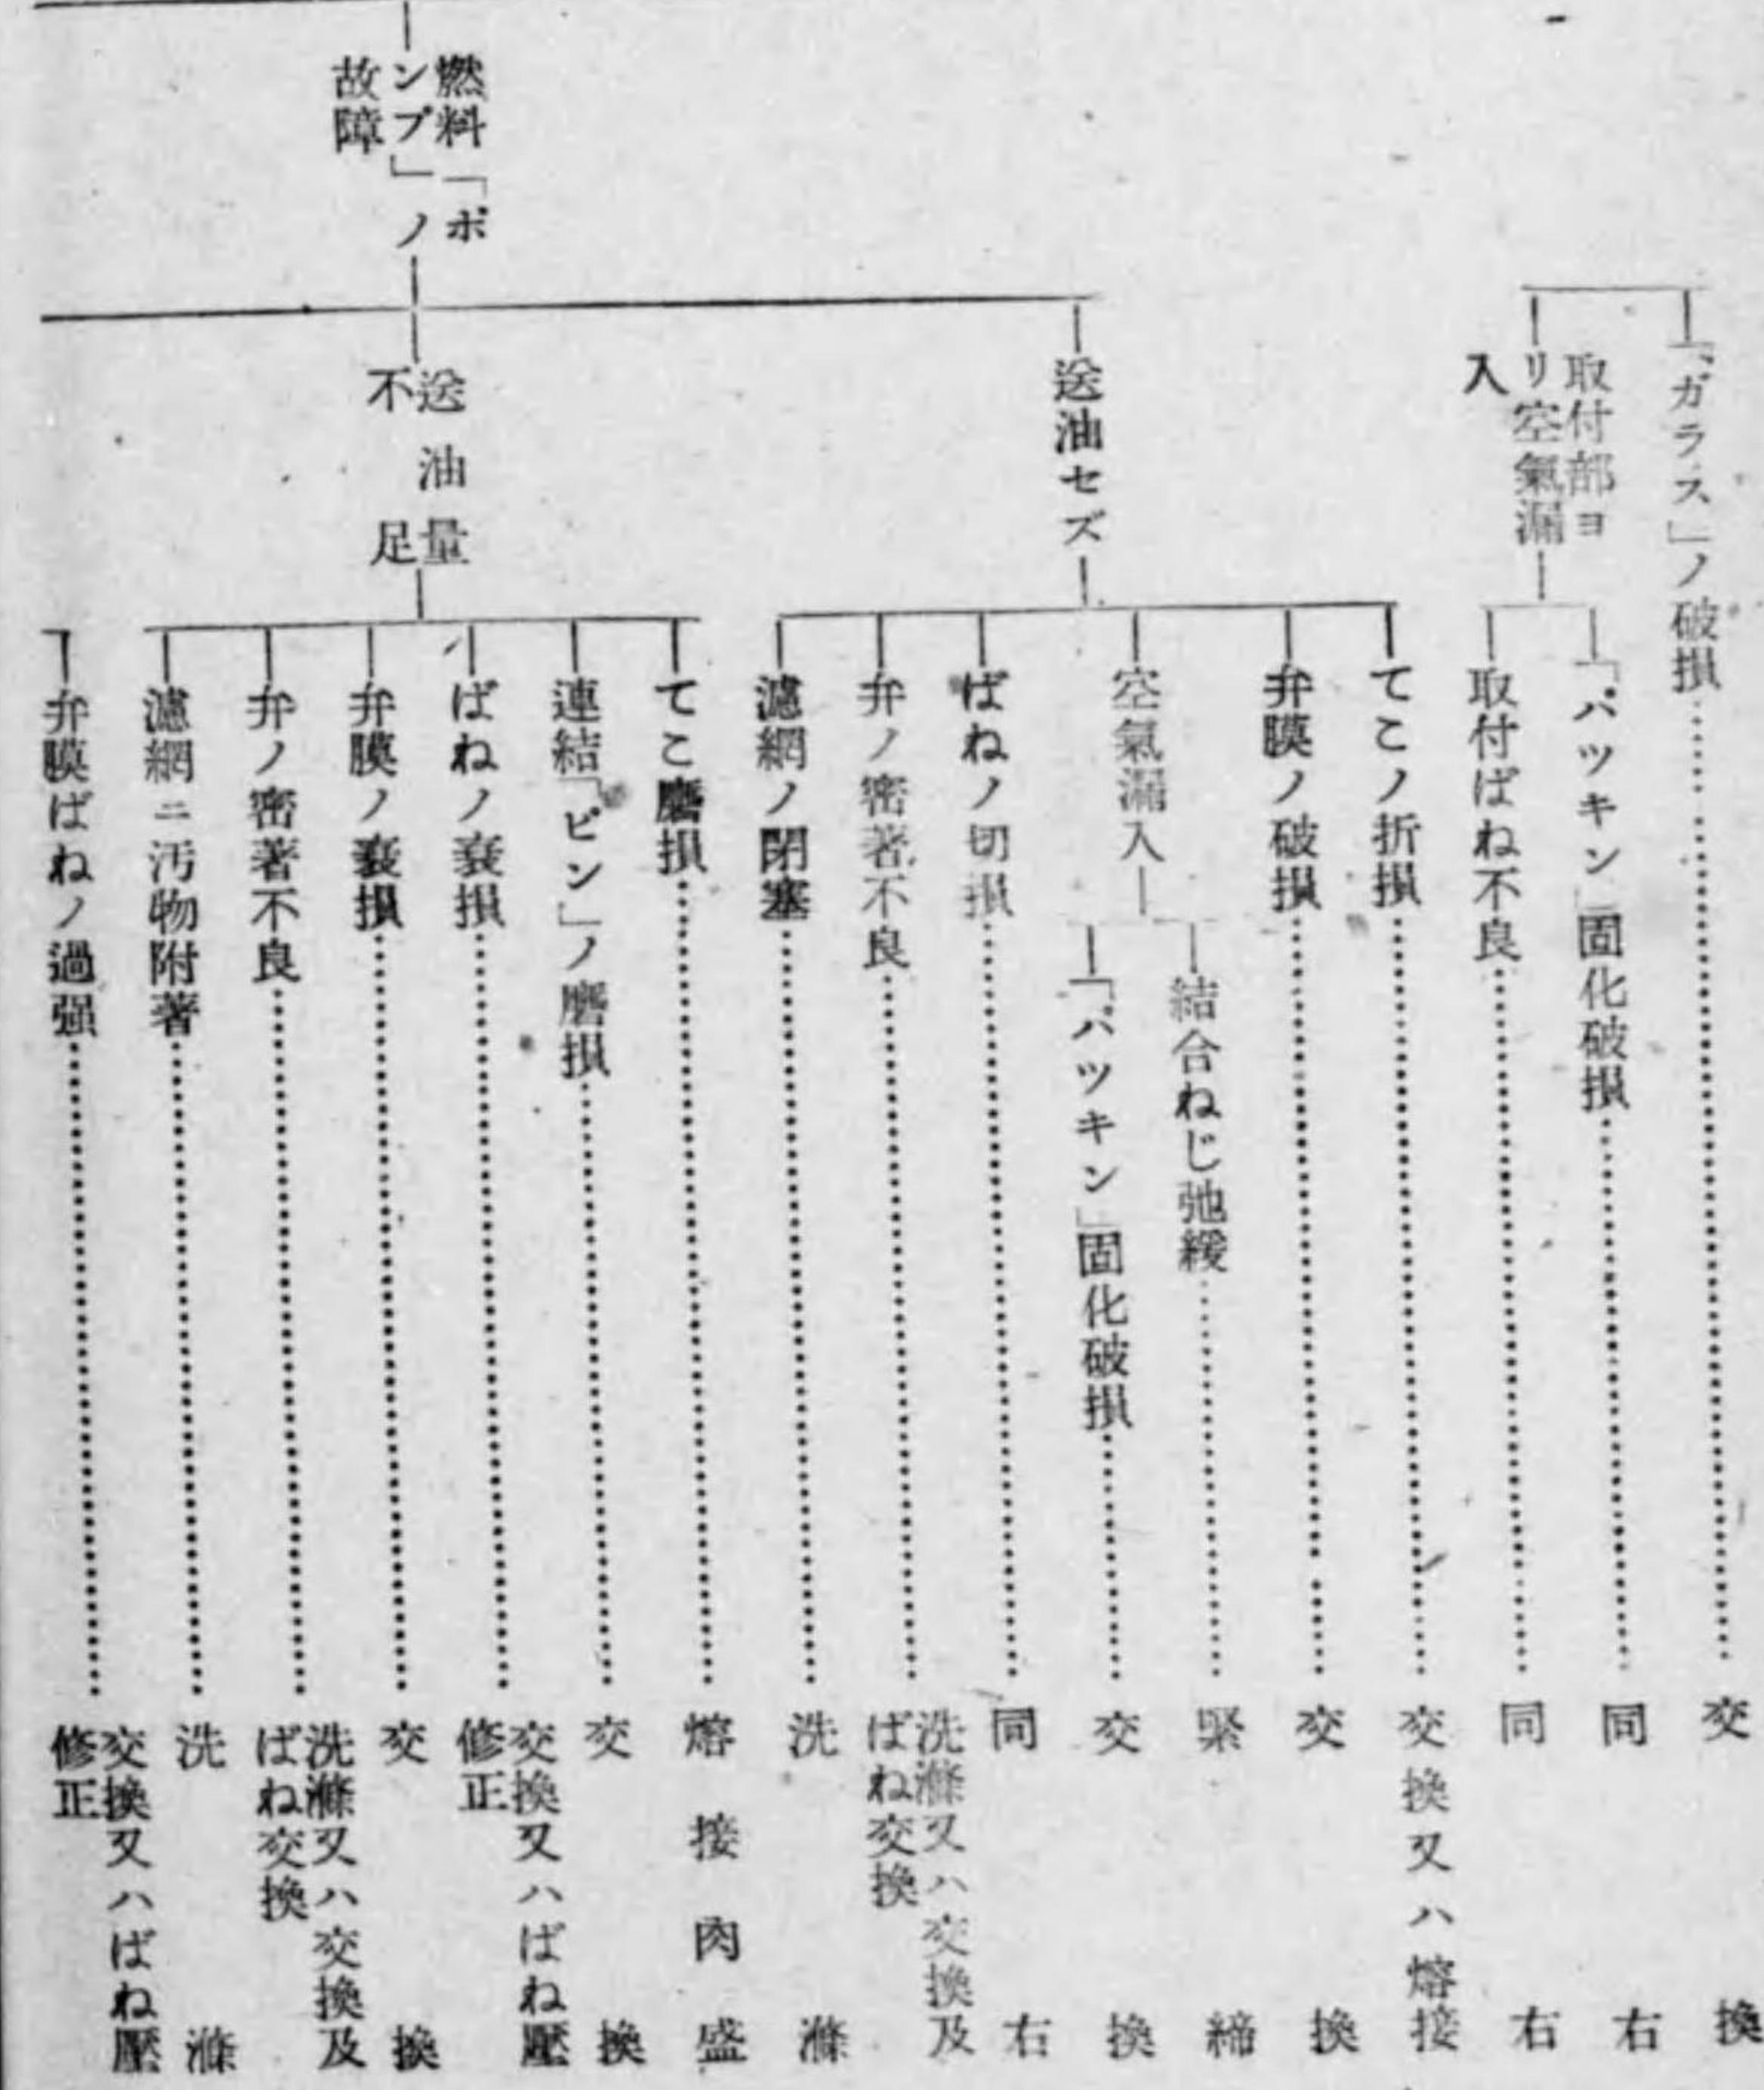 「ガラス」ノ破損……交換
取付部ヨ
リ空氣漏
入
「パツキン」固化破損……同右
取付ばね不良……同右
燃料「ポ
ンプ」ノ
故障
送油セズ
てこノ折損……交換又ハ熔接
弁膜ノ破損……交換
空氣漏入
結合ねじ弛緩……緊締
「パツキン」固化破損……交換
ばねノ切損……同右
弁ノ密著不良……洗滌又ハ交換及
ばね交換
濾網ノ閉塞……洗滌
送油量
不足
てこ磨損……熔接肉盛
連結「ピン」ノ磨損……交換
ばねノ衰損……交換又ハばね壓
修正
弁膜ノ衰損……交換
弁ノ密著不良……洗滌又ハ交換及
ばね交換
濾網ニ汚物附著……洗滌
弁膜ばねノ過强……交換又ハばね壓
修正